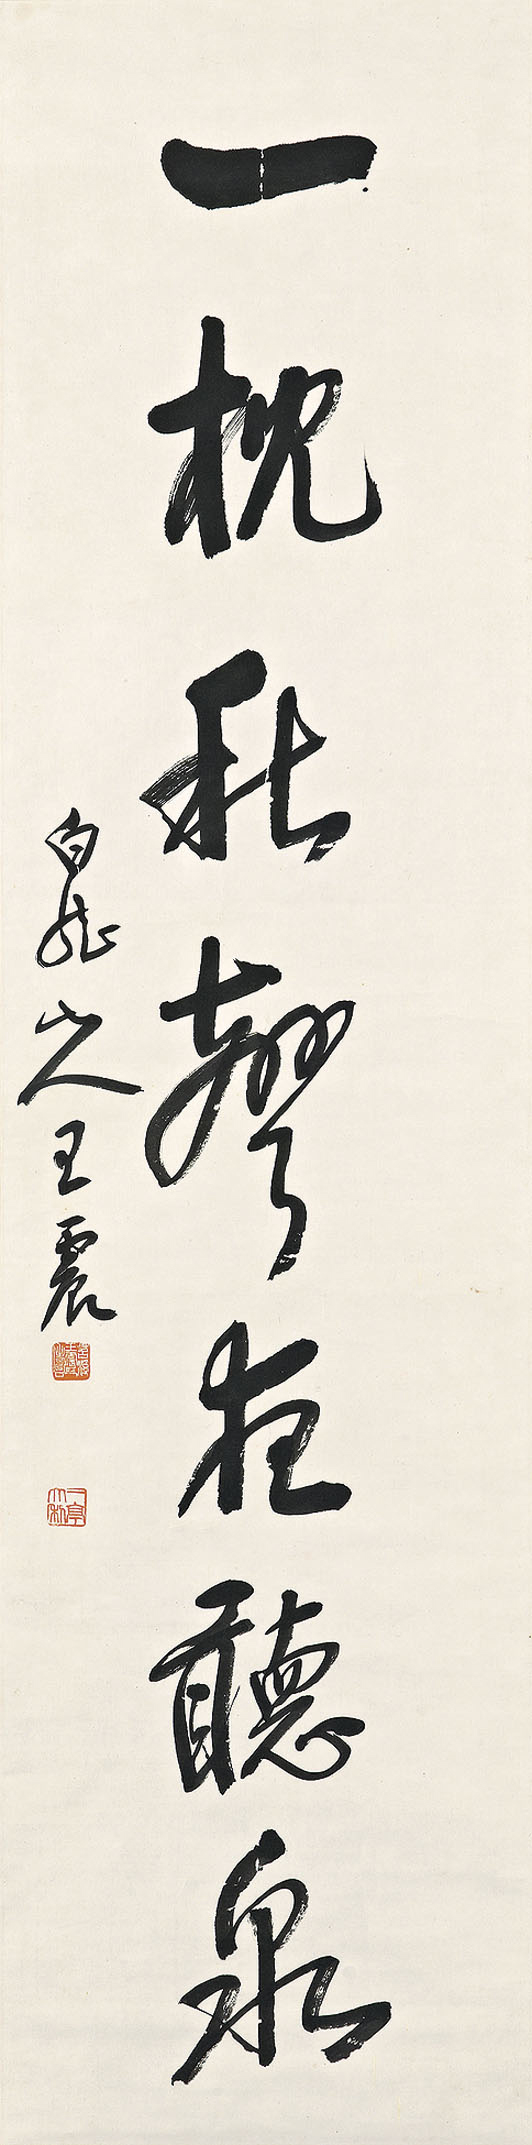 一枕秋聲夜聽泉
白龍山人王震
一亭